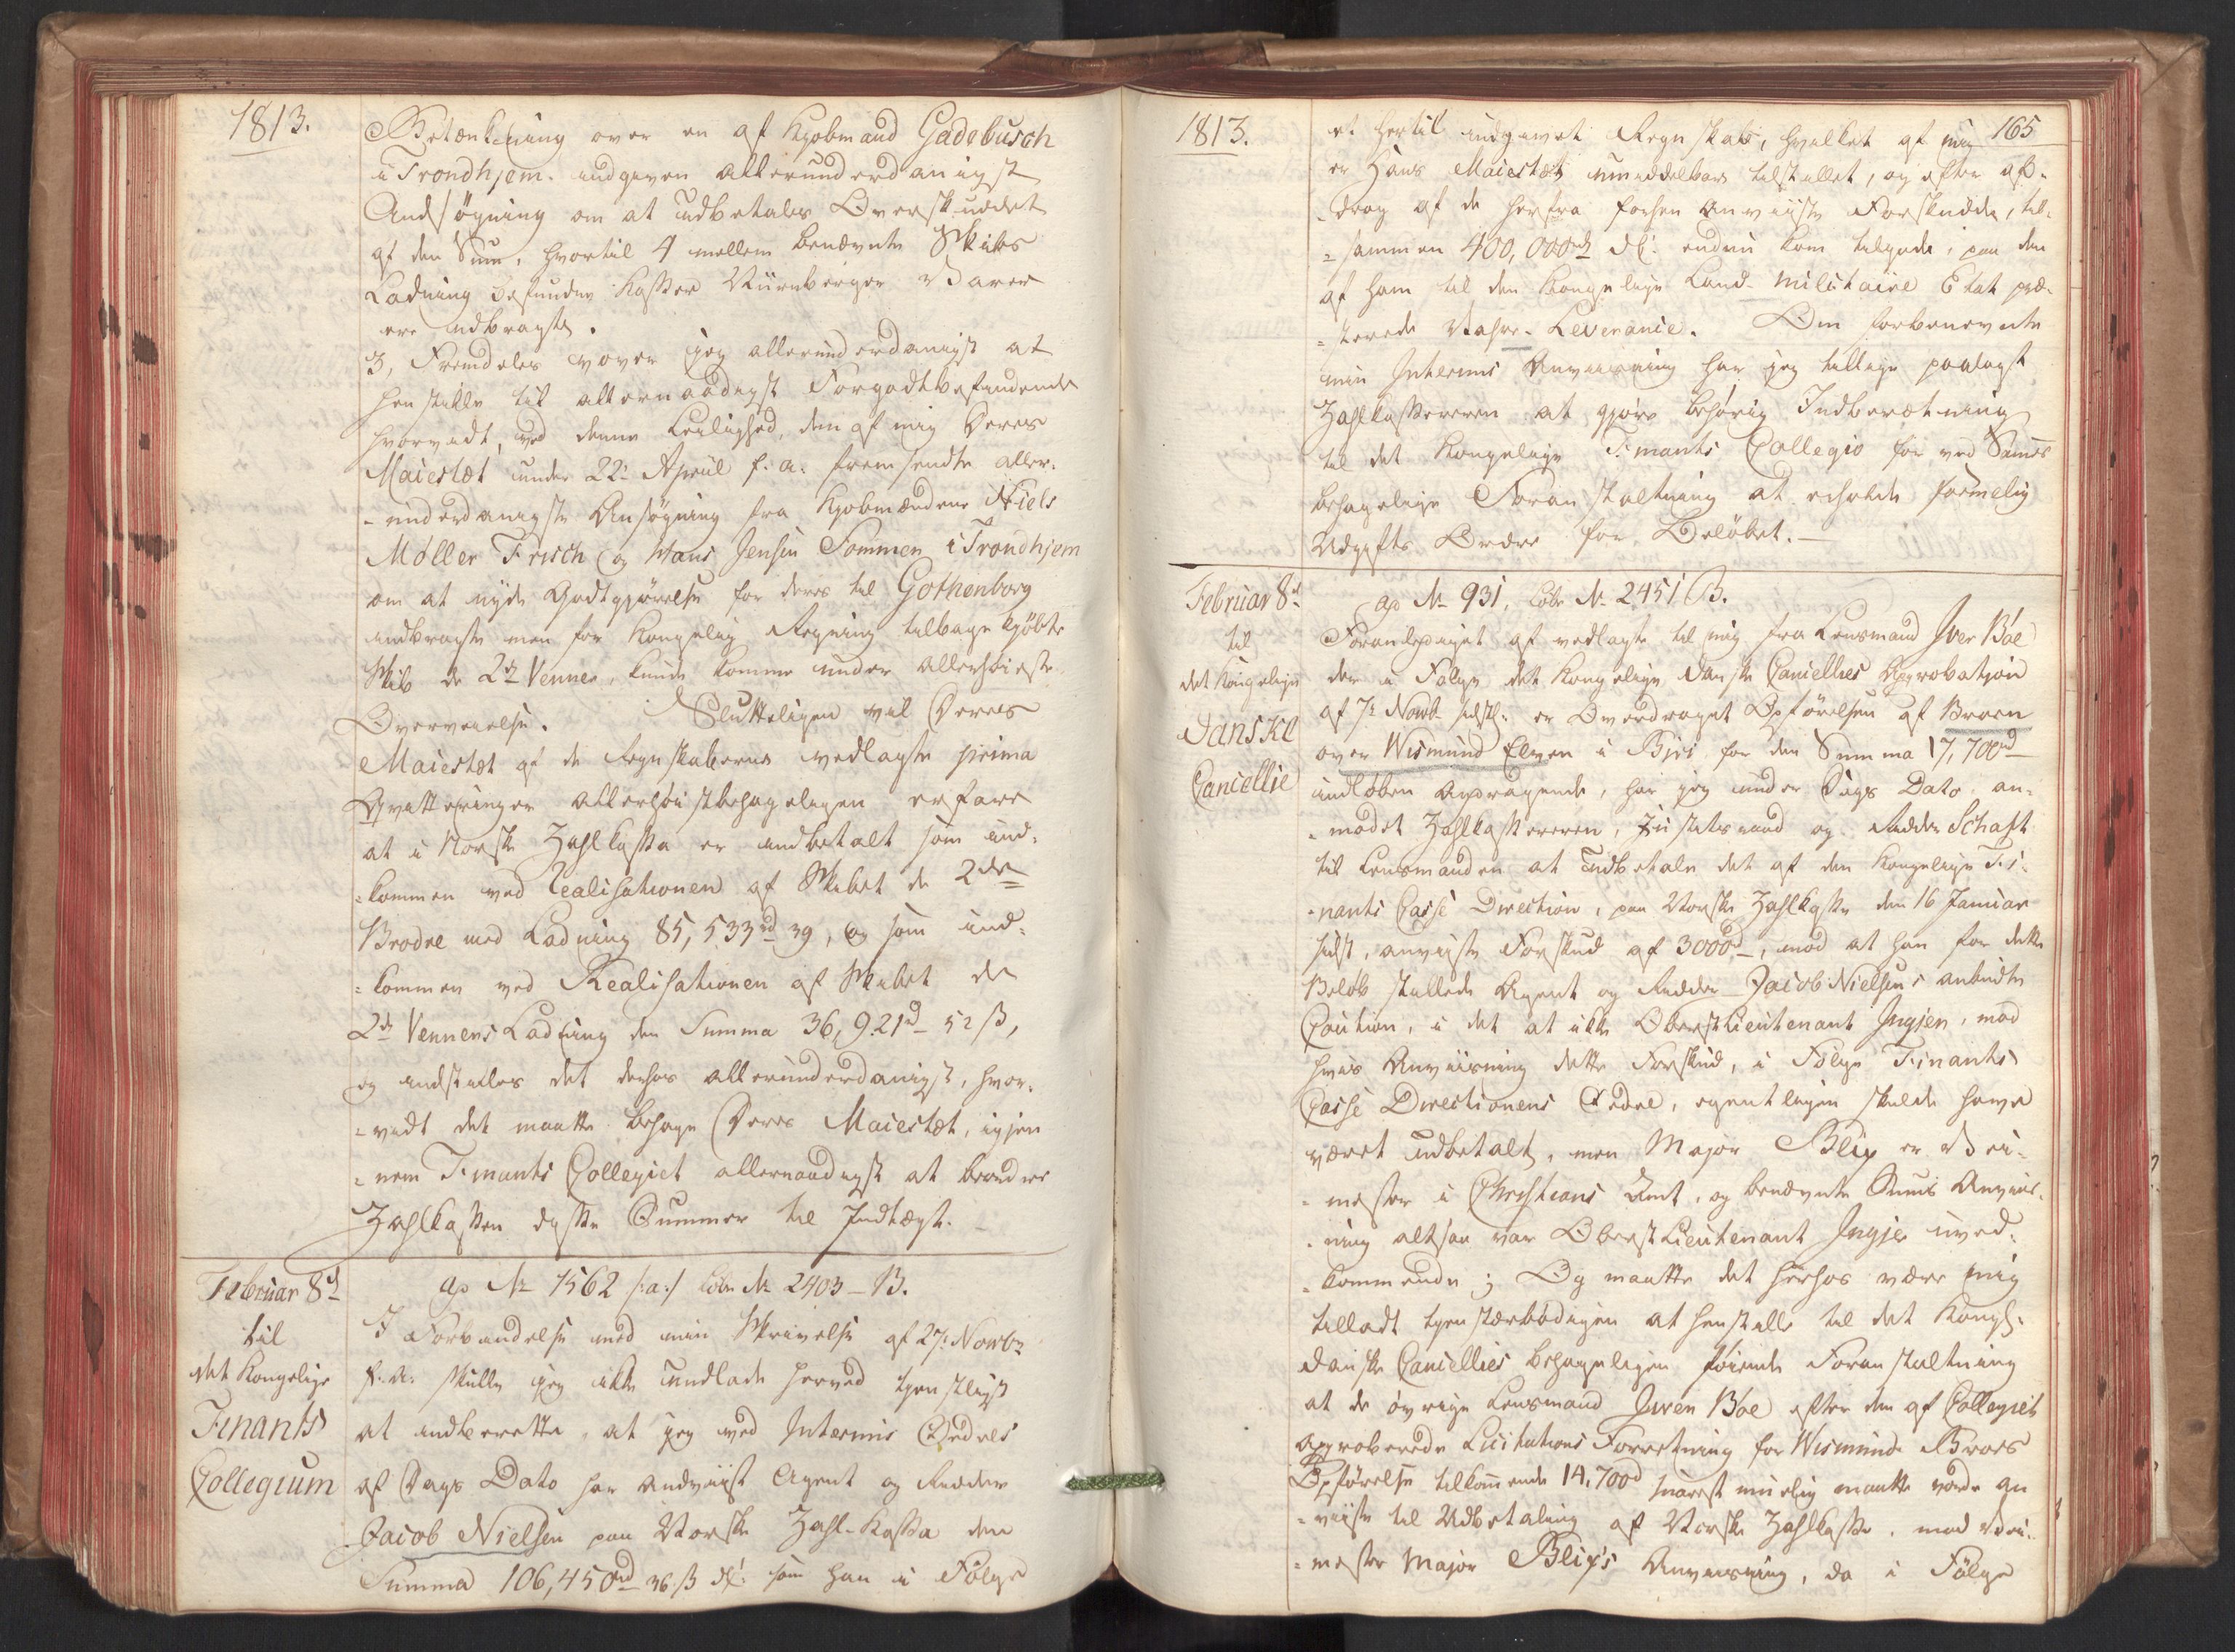 1813.
Betænkning over en af Kjøbmand Gadebusch
i Trondhjem indgiven allerunderdanigst
Ansøgning om at udbetales Overskuddet
af den Sum, hvortil 4 mellem benævnte Skibs
Ladning befundne Kasser Nürnberger Varer
ere udbragte.
3, Fremdeles vover jeg allerunderdanigst at
henstille til allernaadigst Forgodtbefindende
hvorvidt, ved denne Leilighed, den af mig Deres
Maiestæt under 22de April f. a. fremsendte aller-
-underdanigste Ansøgning fra Kjøbmændene Niels
Møller Frisch og Hans Jensen Sommen i Trondhjem
om at nyde Godtgjørelse for deres til Gothenborg
indbragte men for Kongelig Regning tilbage kjøbte
Skib de 2de Venner, kunde komme under allerhøieste
Overveielse. Sluttelige vil Deres
Maiestæt af de Regnskaberne vedlagte prima
Qvitteringer allerhøistbehageligen erfare
at i Norske Zahlkassa er indbetalt som ind-
-kommen ved Realisationen af Skibet de 2de
Brødre med Ladning 85,533rd 39, og som ind-
-kommen ved Realisationen af Skibet de
2de Venners Ladning den Summa 36,921rd 52 ß,
og indstilles det derhos allerunderdanigst, hvor-
-vidt det maatte behage Deres Maiestæt, igjen-
-nem Finants Collegiet allernaadigst at beordre
Zahlkassen disse Summer til Indtægt.
Februar 8d
til
det Kongelige
Finants
Collegium
ap No 1562 /:a:/ Cobr No 2403 - B.
I Forbindelse med min Skrivelse af 27de Novbr
f. A. skulle jeg ikke undlade herved tjenstligst
at indberette, at jeg ved Interims Ordres
af Dags Dato har andviist Agent og Ridder
Jacob Nielsen paa Norske Zahl-Kassa den
Summa 106,450rd 36 ß dC: som han i Følge
1813.
165
et hertil indgivet Regnskab, hvilket af mig
er Hans Maiestæt umiddelbar tilstillet, og efter af-
-drag af de herfra forhen anviiste Forskudde, til-
-sammen 400,000rd dC: endnu kom tilgode, paa den
af ham til den Kongelige Land-militaire Etat præ-
-sterede Vahre-Leverance. Om forbenævnte
min Interims Anviisning har jeg tillige paalagt
Zahlkassereren at gjøre behørig Indberetning
til det Kongelige Finants Collegio for ved Sammes
behagelige Foranstaltning at erholde formelig
Udgifts Ordre for Beløbet. —
Februar 8d
til
det Kongelige
Danske
Cancellie
ap No 931, Cobr No 2451 B.
Foranlediget af vedlagte til mig fra Lensmand Iver Bøe
der i Følge det Kongelige Danske Cancellies Approbation
af 7de Novbr sidstl: er Overdraget Opførelsen af Broen
over Wismund Elven i Biri for den Summa 17,700rd
indløben andragende, har jeg under Dags Dato an-
-modet Zahlkassereren, Justitsraad og Ridder Schaft
til Lensmanden at udbetale det af den Kongelige Fi-
-nants Casse Direction, paa Norske Zahlkasse den 16 Januar
sidst, anviiste Forskud af 3000rd, mod at han for dette
Beløb stillede Agent og Ridder Jacob Nielsens anbudte
Caution, i det at ikke Oberstlieutenant Ingier, mod
hvis Anviisning dette Forskud, i Følge Finants
Casse Directionens Ordre, egentligen skulde have
været udbetalt, men Major Blix er Vei-
-mester i Christians Amt, og benævnte Sums Anviis-
-ning altsaa var Oberstlieutenant Ingier uved-
-kommende; Og maatte det herhos være mig
tilladt tjenstærbødigen at henstille til det Kongl:
Danske Cancellies behageligen føiende Foranstaltning
at de øvrige Lensmand Iwer Bøe efter den af Collegiet
approberede Licitations Forretning for Wismund Broes
Opførelse tilkommende 14,700rd snarest muelig maatte vorde an-
-viiste til Udbetaling af Norske Zahlkasse, mod Vei-
-mester Major Blix's Anviisning, da i Følge